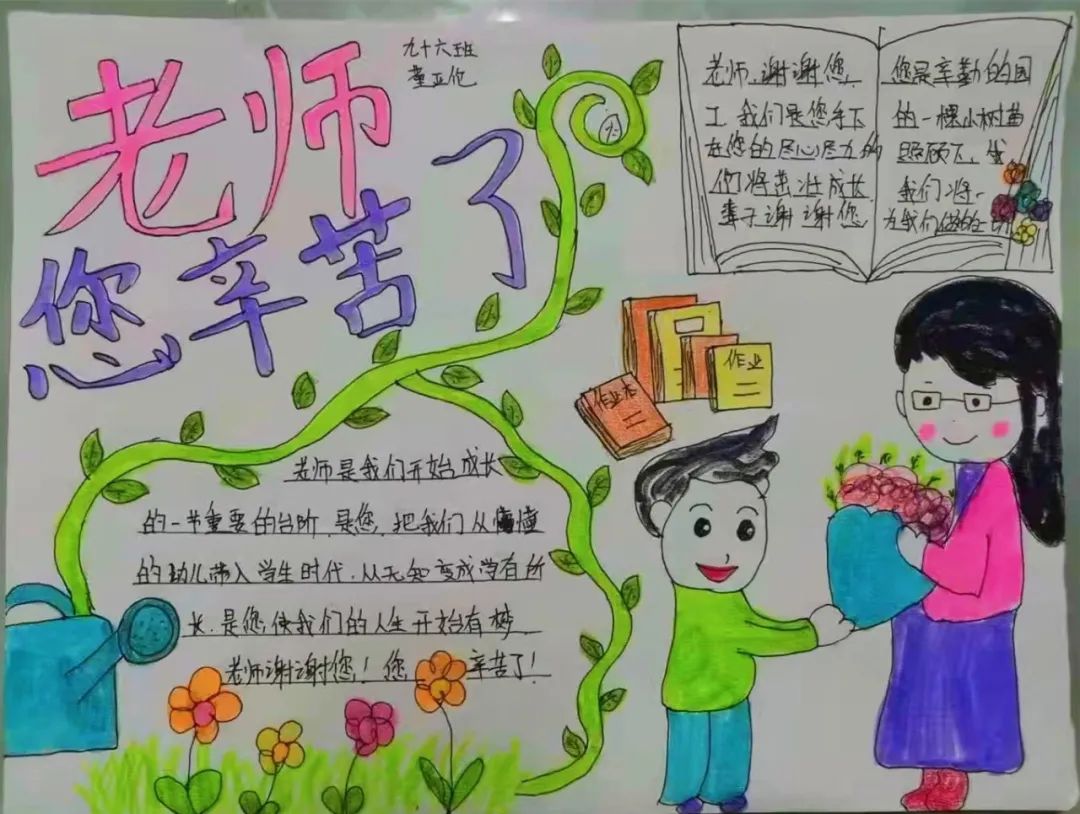 老师
您辛苦了
九十六班
董亚伦
老师,谢谢您,
工.我们是您手下
在您的尽心尽力的
们将茁壮成长
辈子谢谢您
您是辛勤的园
的一棵小树苗
照顾下,我
我们将一
为我们做的一切
作业
作业本
老师是我们开始成长
的一步重要的台阶.是您,把我们从懵懂
的幼儿带入学生时代.从无知变成学有所
长.是您,使我们的人生开始有梦
老师谢谢您!您 辛苦了!